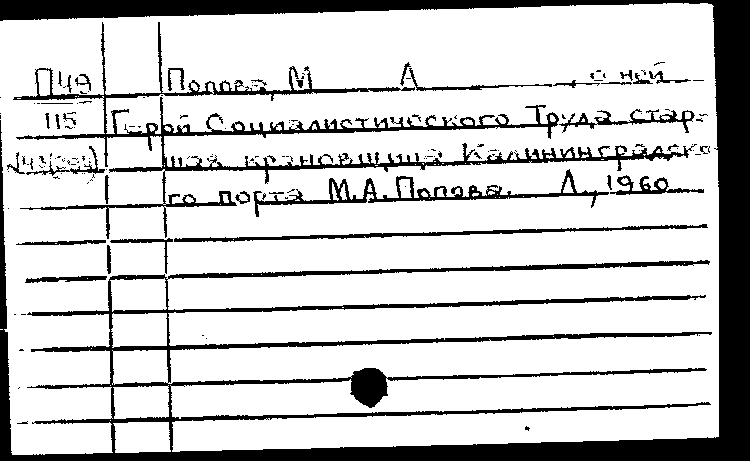 П49 Попова, М А , о ней
115 Герой Социалистического Труда стар-
шая крановщица Калининградско-
го порта М.А. Попова. Л., 1960